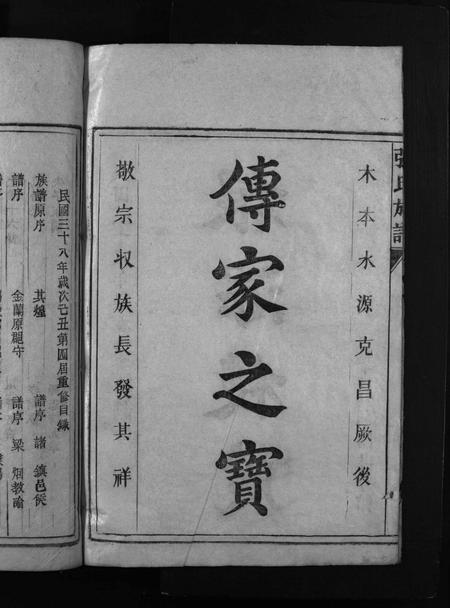 張氏族譜
木本水源克昌厥後
傳家之寶
敬宗収族長發其祥
民國三十八年歲次己丑第四屆重修目錄
族譜原序 其燼 譜序 諸 鎮邑侯
譜序 金蘭原 守 譜序 梁 教諭